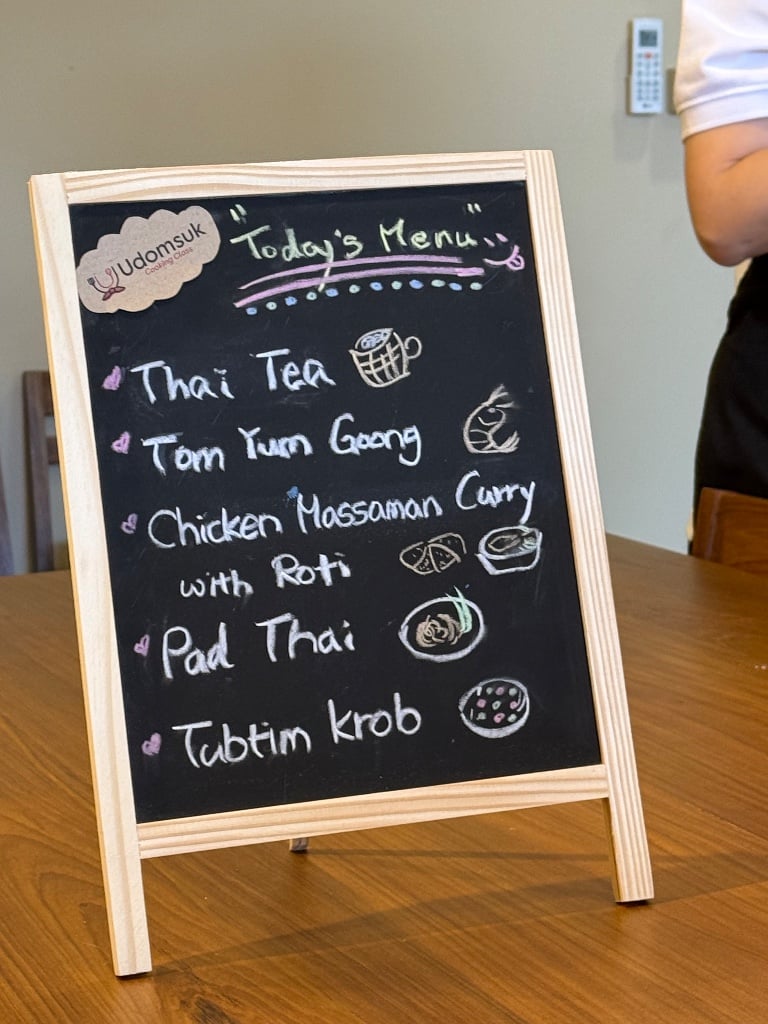 Udomsuk
Cooking Class
"Today's Menu"
Thai Tea
Tom Yum Goong
Chicken Massaman Curry
with Roti
Pad Thai
Tubtim krob